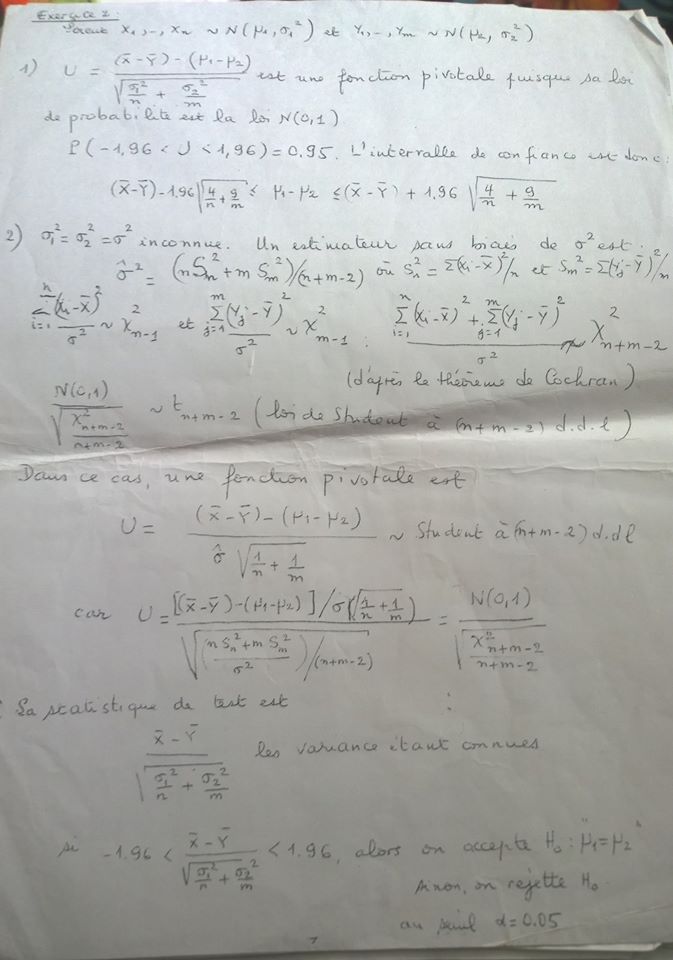 Exercice 2:
Soient X₁, –, Xₙ ~ N(μ₁, σ₁²) et Y₁, –, Yₘ ~ N(μ₂, σ₂²)
1) U = ((X̄-Ȳ) - (μ₁-μ₂)) / √(σ₁²/n + σ₂²/m) est une fonction pivotale puisque sa loi
de probabilité est la loi N(0,1)
P(-1,96 < U < 1,96) = 0.95. L'intervalle de confiance est donc:
(X̄-Ȳ) - 1.96 √(4/n + 9/m) ≤ μ₁-μ₂ ≤ (X̄-Ȳ) + 1.96 √(4/n + 9/m)
2) σ₁² = σ₂² = σ² inconnue. Un estimateur sans biais de σ² est:
σ̂² = (n Sₙ² + m Sₘ²)/(n+m-2) où Sₙ² = Σ(Xᵢ-X̄)²/n et Sₘ² = Σ(Yⱼ-Ȳ)²/m
Σᵢ₌₁ⁿ(Xᵢ-X̄)²/σ² ~ χ²ₙ₋₁ et Σⱼ₌₁ᵐ(Yⱼ-Ȳ)²/σ² ~ χ²ₘ₋₁ : (Σᵢ₌₁ⁿ(Xᵢ-X̄)² + Σⱼ₌₁ᵐ(Yⱼ-Ȳ)²)/σ² ~ χ²ₙ₊ₘ₋₂
(d'après le théorème de Cochran)
N(0,1) / √(χ²ₙ₊ₘ₋₂/(n+m-2)) ~ tₙ₊ₘ₋₂ (loi de Student à (n+m-2) d.d.l)
Dans ce cas, une fonction pivotale est
U = ((X̄-Ȳ) - (μ₁-μ₂)) / (σ̂ √(1/n + 1/m)) ~ Student à (n+m-2) d.dl
car U = ([(X̄-Ȳ)-(μ₁-μ₂)]/σ√(1/n + 1/m)) / √(((n Sₙ²+m Sₘ²)/σ²)/(n+m-2)) = N(0,1) / √(χ²ₙ₊ₘ₋₂/(n+m-2))
La statistique de test est :
(X̄-Ȳ) / √(σ₁²/n + σ₂²/m) les variance étant connues
si -1.96 < (X̄-Ȳ) / √(σ₁²/n + σ₂²/m) < 1.96, alors on accepte H₀: "μ₁=μ₂"
sinon, on rejette H₀
au seuil α=0.05